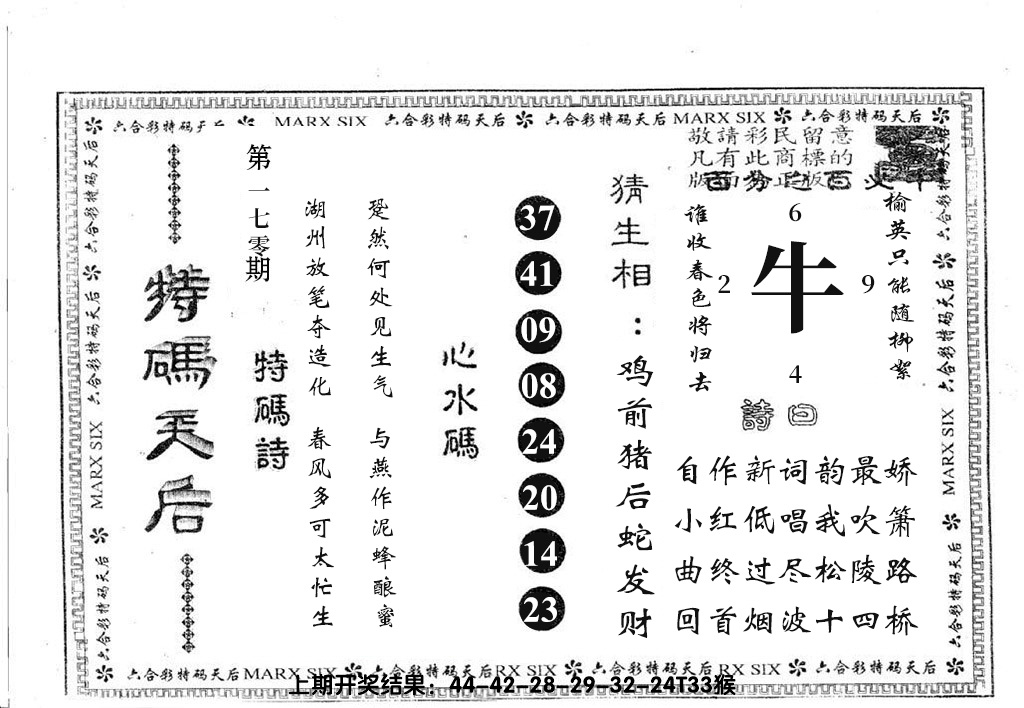 六合彩特码天后 MARX SIX 六合彩特码天后 六合彩特码天后 MARX SIX 六合彩特码天后
敬請彩民留意
凡有此商標的
版面為正版
猜生相：鸡前猪后蛇发财
榆英只能随柳絮
谁收春色将归去
6
2 牛 9
4
詩曰
自作新词韵最娇
小红低唱我吹箫
曲终过尽松陵路
回首烟波十四桥
心水碼
37
41
09
08
24
20
14
23
跫然何处见生气 与燕作泥蜂酿蜜
湖州放笔夺造化 春风多可太忙生
特碼詩
第一七零期
特碼天后
六合彩特码天后
六合彩特码天后
MARX SIX
六合彩特码天后
六合彩特码天后
六合彩特码天后
MARX SIX
六合彩特码天后
六合彩特码天后 MARX SIX 六合彩特码天后 RX SIX 六合彩特码天后 RX SIX 六合彩特码天后
上期开奖结果：44-42-28-29-32-24T33猴